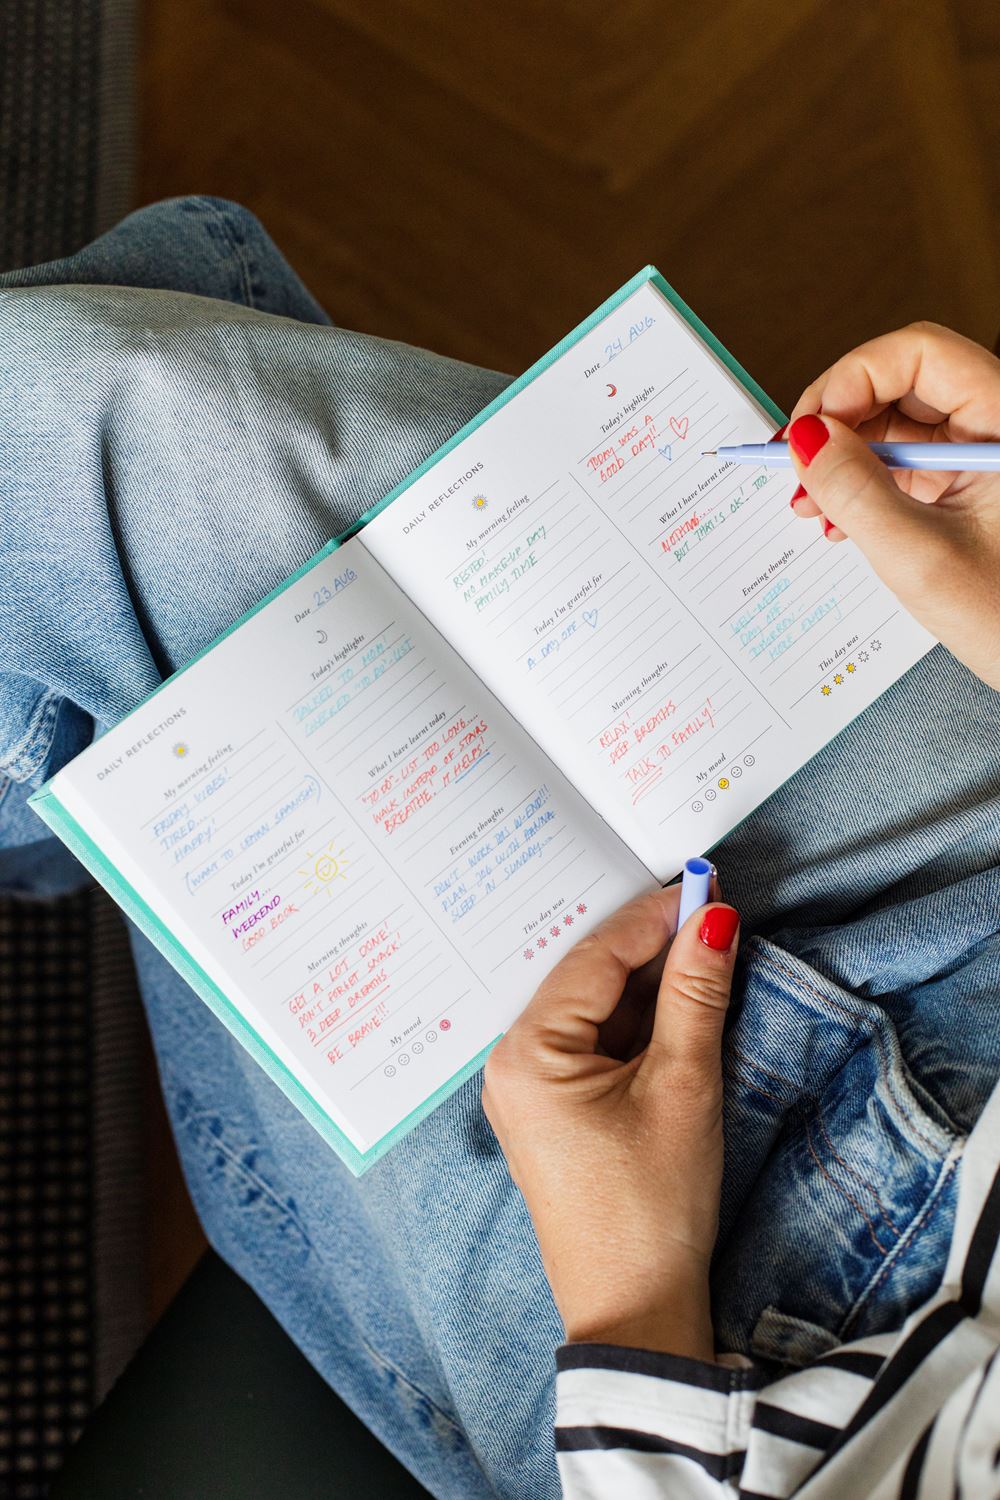 DAILY REFLECTIONS
My morning feeling
FRIDAY VIBES!
TIRED...
HAPPY!
(WANT TO LEARN SPANISH!)
Today I'm grateful for
FAMILY...
WEEKEND
GOOD BOOK
Morning thoughts
GET A LOT DONE!
DON'T FORGET SNACK!
3 DEEP BREATHS
BE BRAVE!!!
My mood
Date 23 AUG
Today's highlights
TALKED TO MOM!
CHECKED "TO DO"-LIST
What I have learnt today
"TO DO"-LIST TOO LONG....
WALK INSTEAD OF STAIRS
BREATHE. IT HELPS!
Evening thoughts
DON'T WORK THIS W-END!!!
PLAN JOG WITH HANNA
SLEEP IN SUNDAY...
This day was
DAILY REFLECTIONS
My morning feeling
RESTED!
NO MAKE-UP DAY
FAMILY TIME
Today I'm grateful for
A DAY OFF
Morning thoughts
RELAX!
DEEP BREATHS
TALK TO FAMILY!
My mood
Date 24 AUG.
Today's highlights
TODAY WAS A
GOOD DAY!!
What I have learnt today
NOTHING....
BUT THAT'S OK! TOO
Evening thoughts
WELL-NEEDED
DAY OFF...
MORE ENERGY
This day was